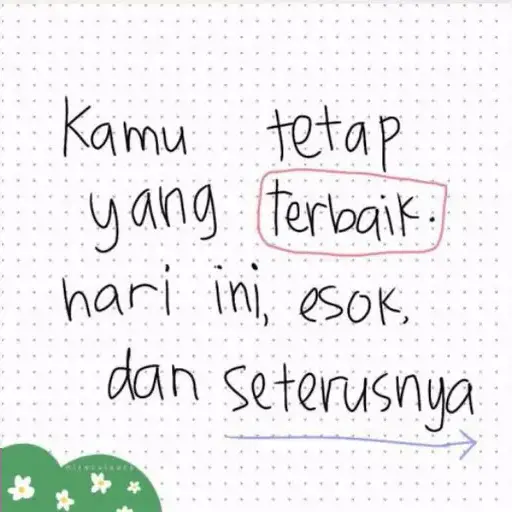 Kamu tetap
yang terbaik.
hari ini, esok,
dan seterusnya